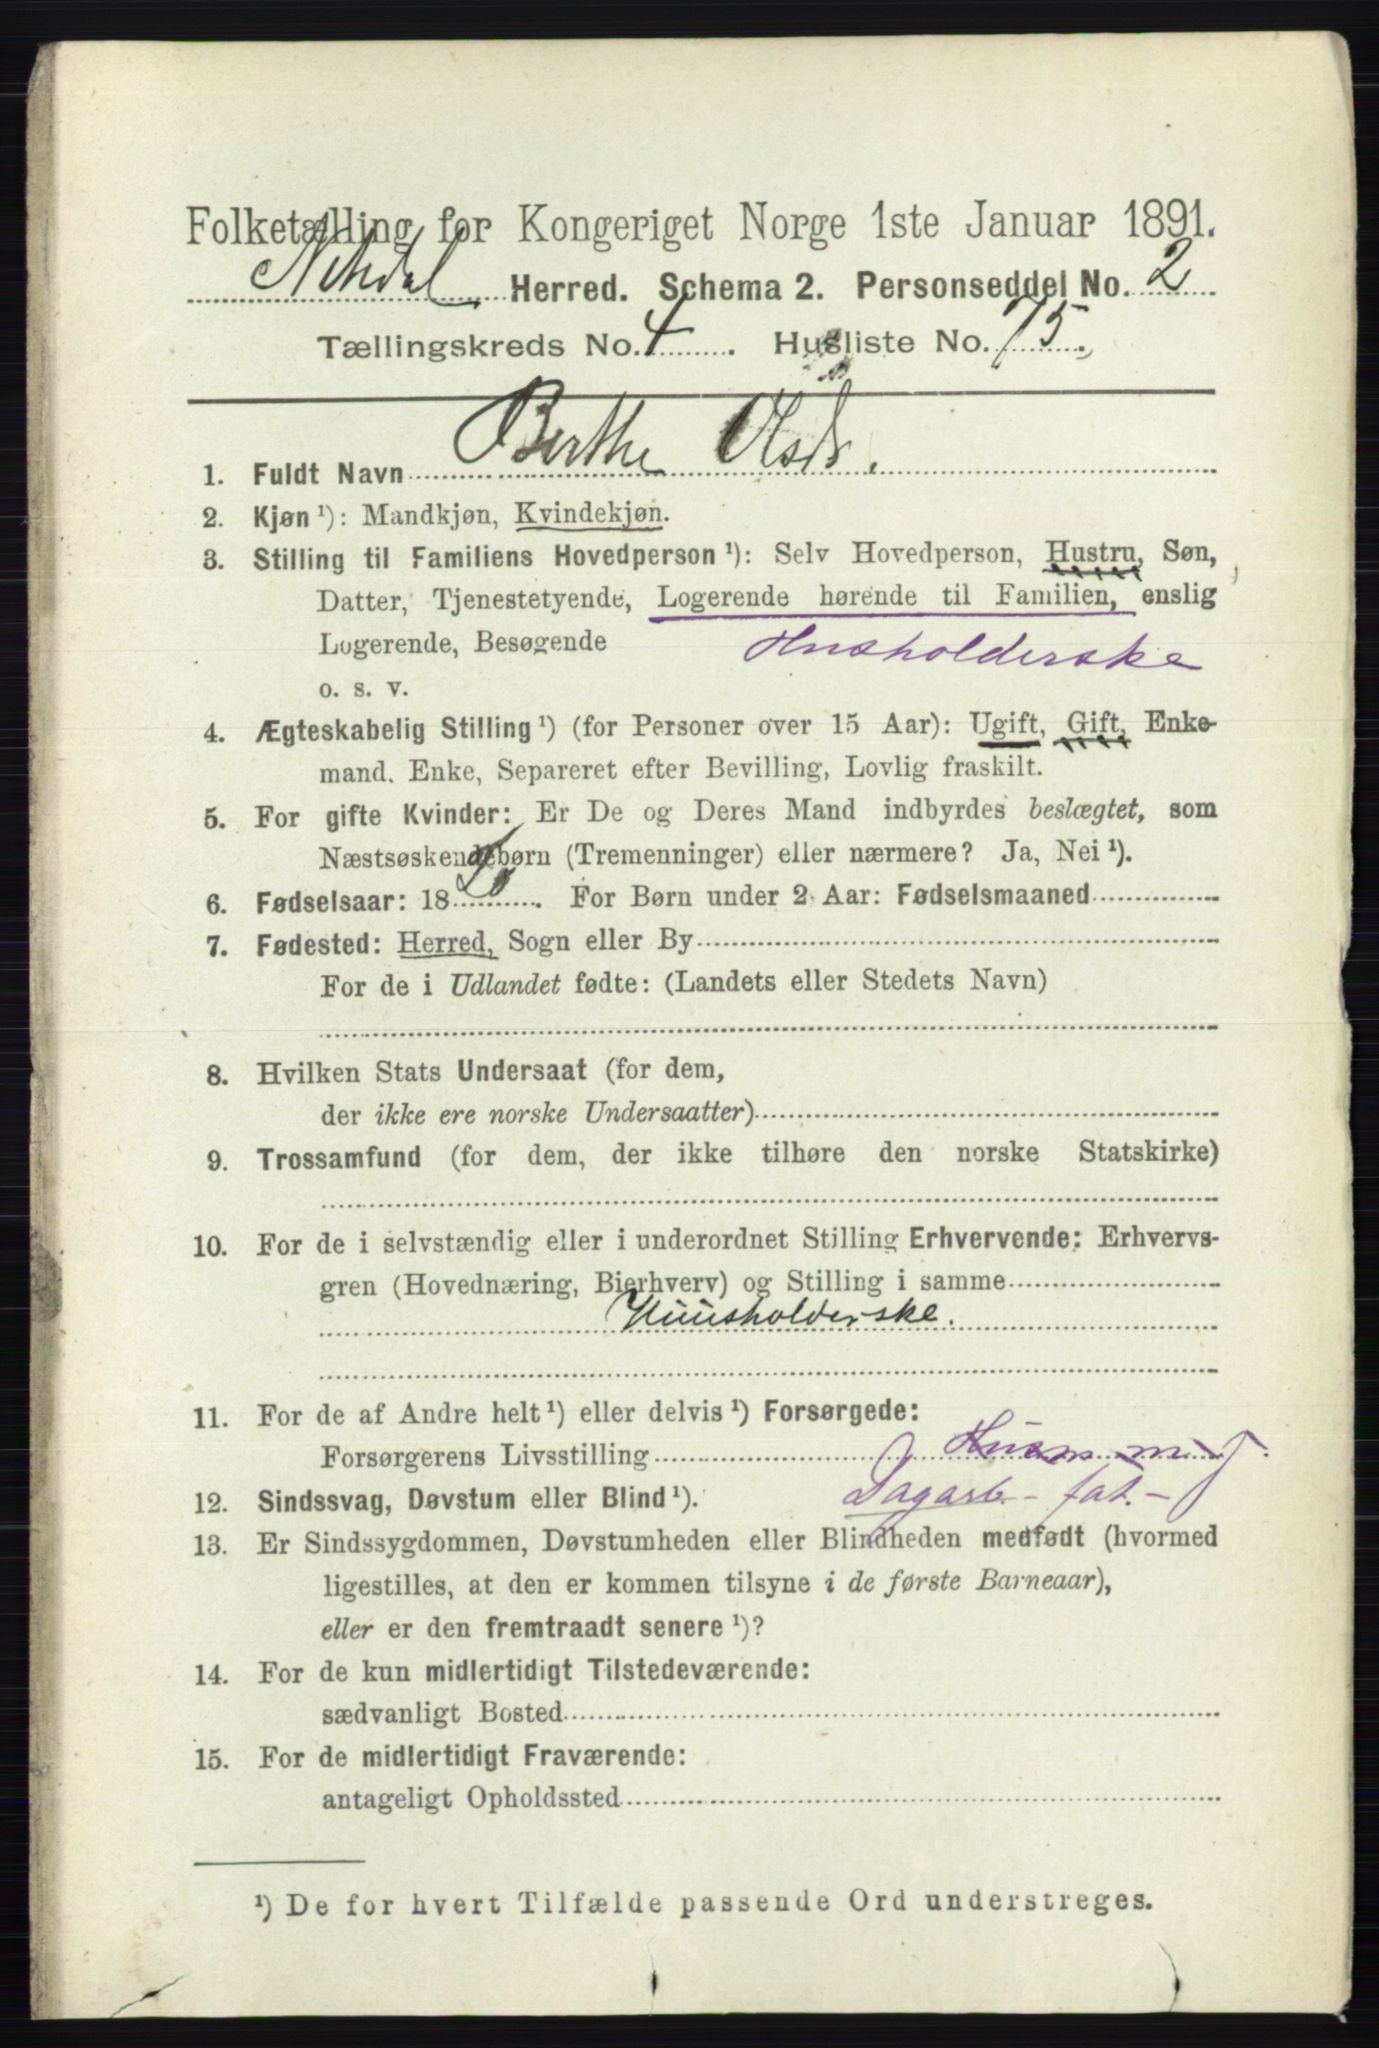 Folketælling for Kongeriget Norge 1ste Januar 1891.
Herred. Schema 2. Personseddel No. 2
Tællingskreds No. 4. Husliste No. 75.
1. Fuldt Navn Berthe Olsdr.
2. Kjøn ¹): Mandkjøn, Kvindekjøn.
3. Stilling til Familiens Hovedperson ¹): Selv Hovedperson, Hustru, Søn,
Datter, Tjenestetyende, Logerende hørende til Familien, enslig
Logerende, Besøgende Husholderske
o. s. v.
4. Ægteskabelig Stilling ¹) (for Personer over 15 Aar): Ugift, Gift, Enke-
mand, Enke, Separeret efter Bevilling, Lovlig fraskilt.
5. For gifte Kvinder: Er De og Deres Mand indbyrdes beslægtet, som
Næstsøskendebørn (Tremenninger) eller nærmere? Ja, Nei ¹).
6. Fødselsaar: 18 20. For Børn under 2 Aar: Fødselsmaaned
7. Fødested: Herred, Sogn eller By
For de i Udlandet fødte: (Landets eller Stedets Navn)
8. Hvilken Stats Undersaat (for dem,
der ikke ere norske Undersaatter)
9. Trossamfund (for dem, der ikke tilhøre den norske Statskirke)
10. For de i selvstændig eller i underordnet Stilling Erhvervende: Erhvervs-
gren (Hovednæring, Bierhverv) og Stilling i samme
Huusholderske.
11. For de af Andre helt ¹) eller delvis ¹) Forsørgede:
Forsørgerens Livsstilling Husm. m. J.
12. Sindssvag, Døvstum eller Blind ¹). Dagarb. - fat. -
13. Er Sindssygdommen, Døvstumheden eller Blindheden medfødt (hvormed
ligestilles, at den er kommen tilsyne i de første Barneaar),
eller er den fremtraadt senere ¹)?
14. For de kun midlertidigt Tilstedeværende:
sædvanligt Bosted
15. For de midlertidigt Fraværende:
antageligt Opholdssted
¹) De for hvert Tilfælde passende Ord understreges.